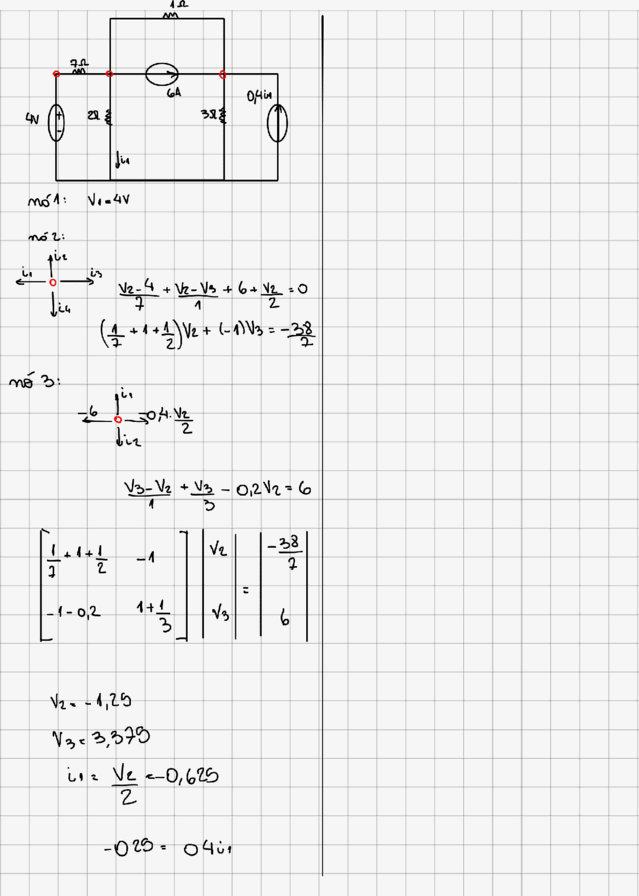 1Ω
7Ω
6A
0,4i1
4V
+
-
2Ω
3Ω
i1
nó 1: V1=4V
nó 2:
i2
i1 i3
i4
V2-4/7 + V2-V3/1 + 6 + V2/2 = 0
(1/7 + 1 + 1/2)V2 + (-1)V3 = -38/7
nó 3:
i1
-6 -0,4.V2/2
i2
V3-V2/1 + V3/3 - 0,2V2 = 6
[1/7+1+1/2 -1] |V2| |-38/7|
=
[-1-0,2 1+1/3] |V3| |6|
V2 = -1,25
V3 = 3,375
i1 = V2/2 = -0,625
-025 = 04i1